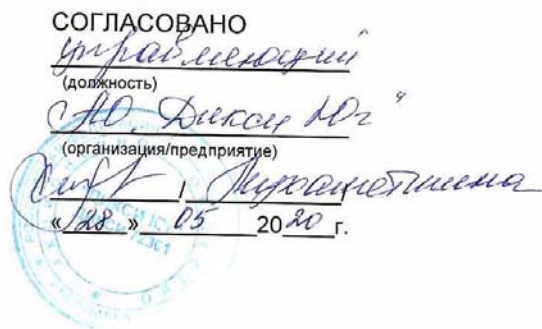 СОГЛАСОВАНО
управляющий
(должность)
АО "Дикси Юг"
(организация/предприятие)
/
«28» 05 2020 г.